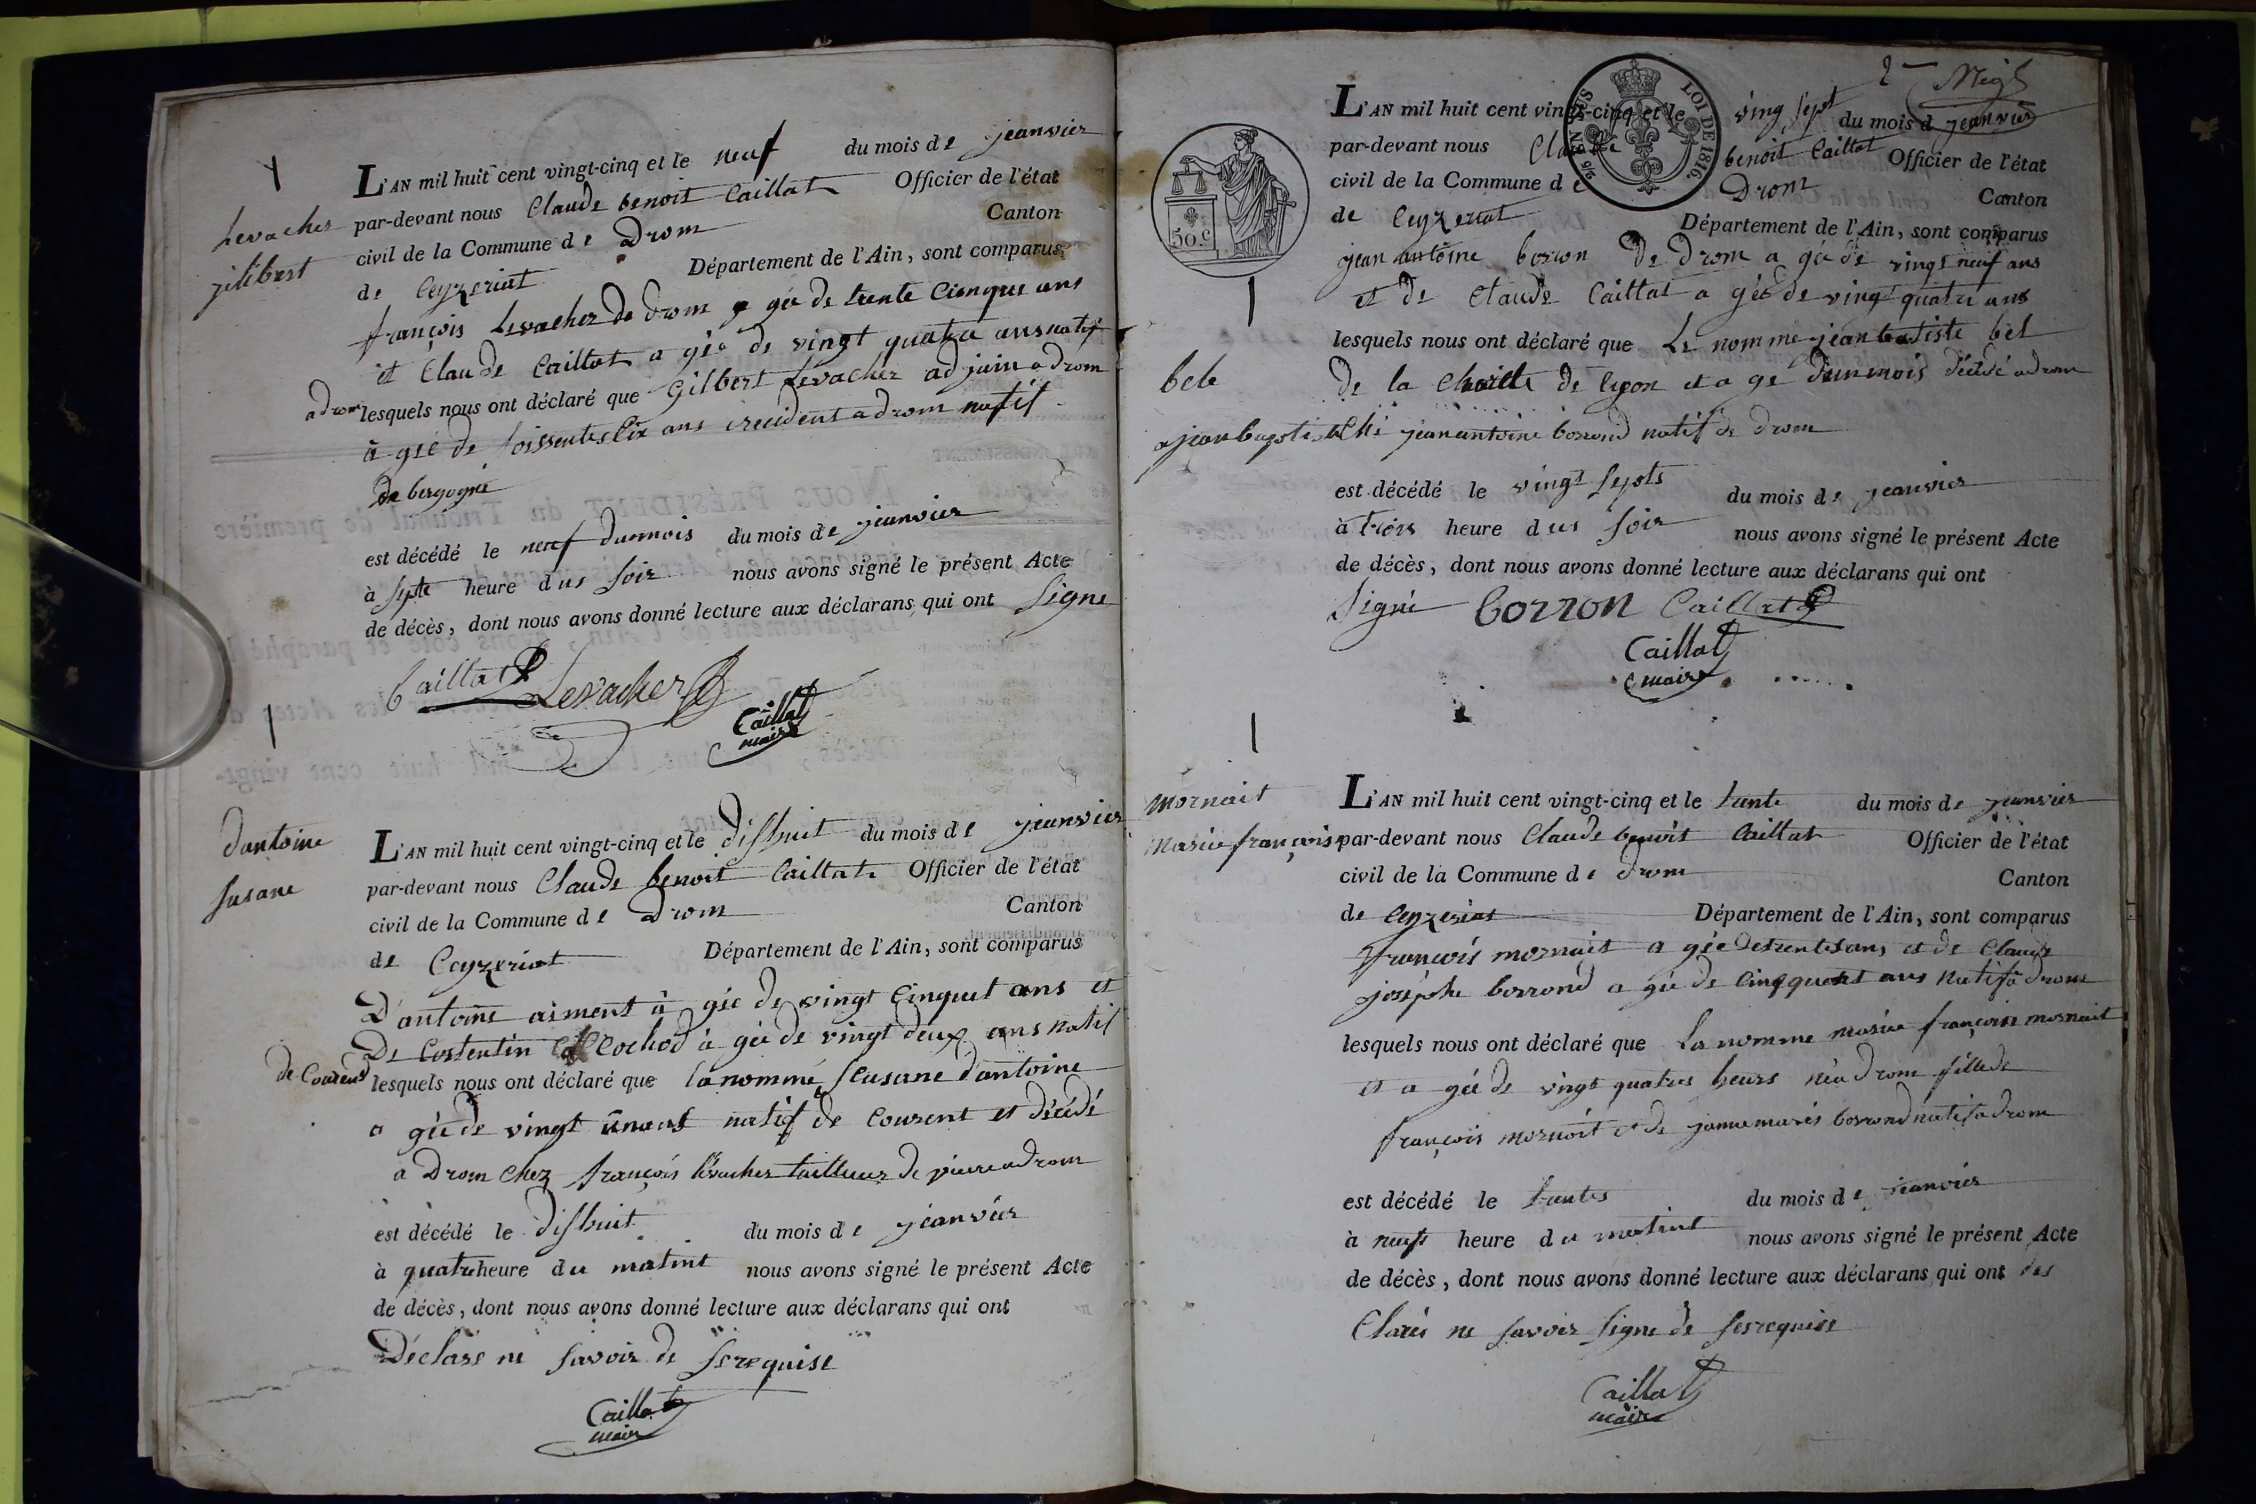 Levacher
jilibert
L'AN mil huit cent vingt-cinq et le neuf du mois de jeanvier
par-devant nous Claude benoit Caillat Officier de l'état
civil de la Commune de Drom Canton
de Ceyzeriat Département de l'Ain, sont comparus
françois Levacher de drom a gée de trente Cienque ans
et Claude Caillat a gée de vingt quatre ans natif
a drom lesquels nous ont déclaré que Gilbert Levacher adjoin a drom
à gée de soissente ans resident a drom natif
de bergogne
est décédé le neuf dumois du mois de jeanvier
à sypte heure dus soir nous avons signé le présent Acte
de décès, dont nous avons donné lecture aux déclarans qui ont signe
Caillat Levacher
Caillat
maire
dantoine
susane
L'AN mil huit cent vingt-cinq et le dishuit du mois de jeanvier
par-devant nous Claude benoit Caillat Officier de l'état
civil de la Commune de Drom Canton
de Ceyzeriat Département de l'Ain, sont comparus
D'antoine aiment à gée de vingt Cinquet ans et
De Costentin Cochod à gée de vingt deux ans natif
de Courent lesquels nous ont déclaré que la nommé susane d'antoine
a gée de vingt natif de Courent et décédé
a Drom Chez françois levacher tailleur de pierre a drom
est décédé le dishuit du mois de jeanvier
à quatre heure du matint nous avons signé le présent Acte
de décès, dont nous avons donné lecture aux déclarans qui ont
Déclare ne savoir de ses requise
Caillat
maire
2me
50.c
LOI DE 1816.
L'AN mil huit cent vingt-cinq et le ving sept du mois d jeanvier
par-devant nous Claude benoit Caillat Officier de l'état
civil de la Commune de Drom Canton
de Ceyzeriat Département de l'Ain, sont comparus
jean antoine borron De Drom a gée de vingt neuf ans
et de Claude Caillat a gée de vingt quatre ans
lesquels nous ont déclaré que Le nomme jean batiste bel
bele
de la Charite de lyon et a ge dunmois décédé a drom
jean bapstiste Chi jeanantoine borrond natif de drom
est décédé le vingt septs du mois de jeanvier
à trois heure dus soir nous avons signé le présent Acte
de décès, dont nous avons donné lecture aux déclarans qui ont
signé borron Caillat
Caillat
maire
mornait
Marie françoise
L'AN mil huit cent vingt-cinq et le trente du mois de jeanvier
par-devant nous Claude benoit Caillat Officier de l'état
civil de la Commune de Drom Canton
de Ceyzeriat Département de l'Ain, sont comparus
françois mornait a gée de trente ans et de Claude
josephe borrond a gée de Cinqquant ans natif a drom
lesquels nous ont déclaré que La nomme marie françoise mornait
et a gée de vingt quatres heurs née a Drom fille de
françois mornait et de janne marie borrond natif a drom
est décédé le trentes du mois de jeanvier
à neuf heure du matint nous avons signé le présent Acte
de décès, dont nous avons donné lecture aux déclarans qui ont des
Clarés ne savoir signe de ses requise
Caillat
maire